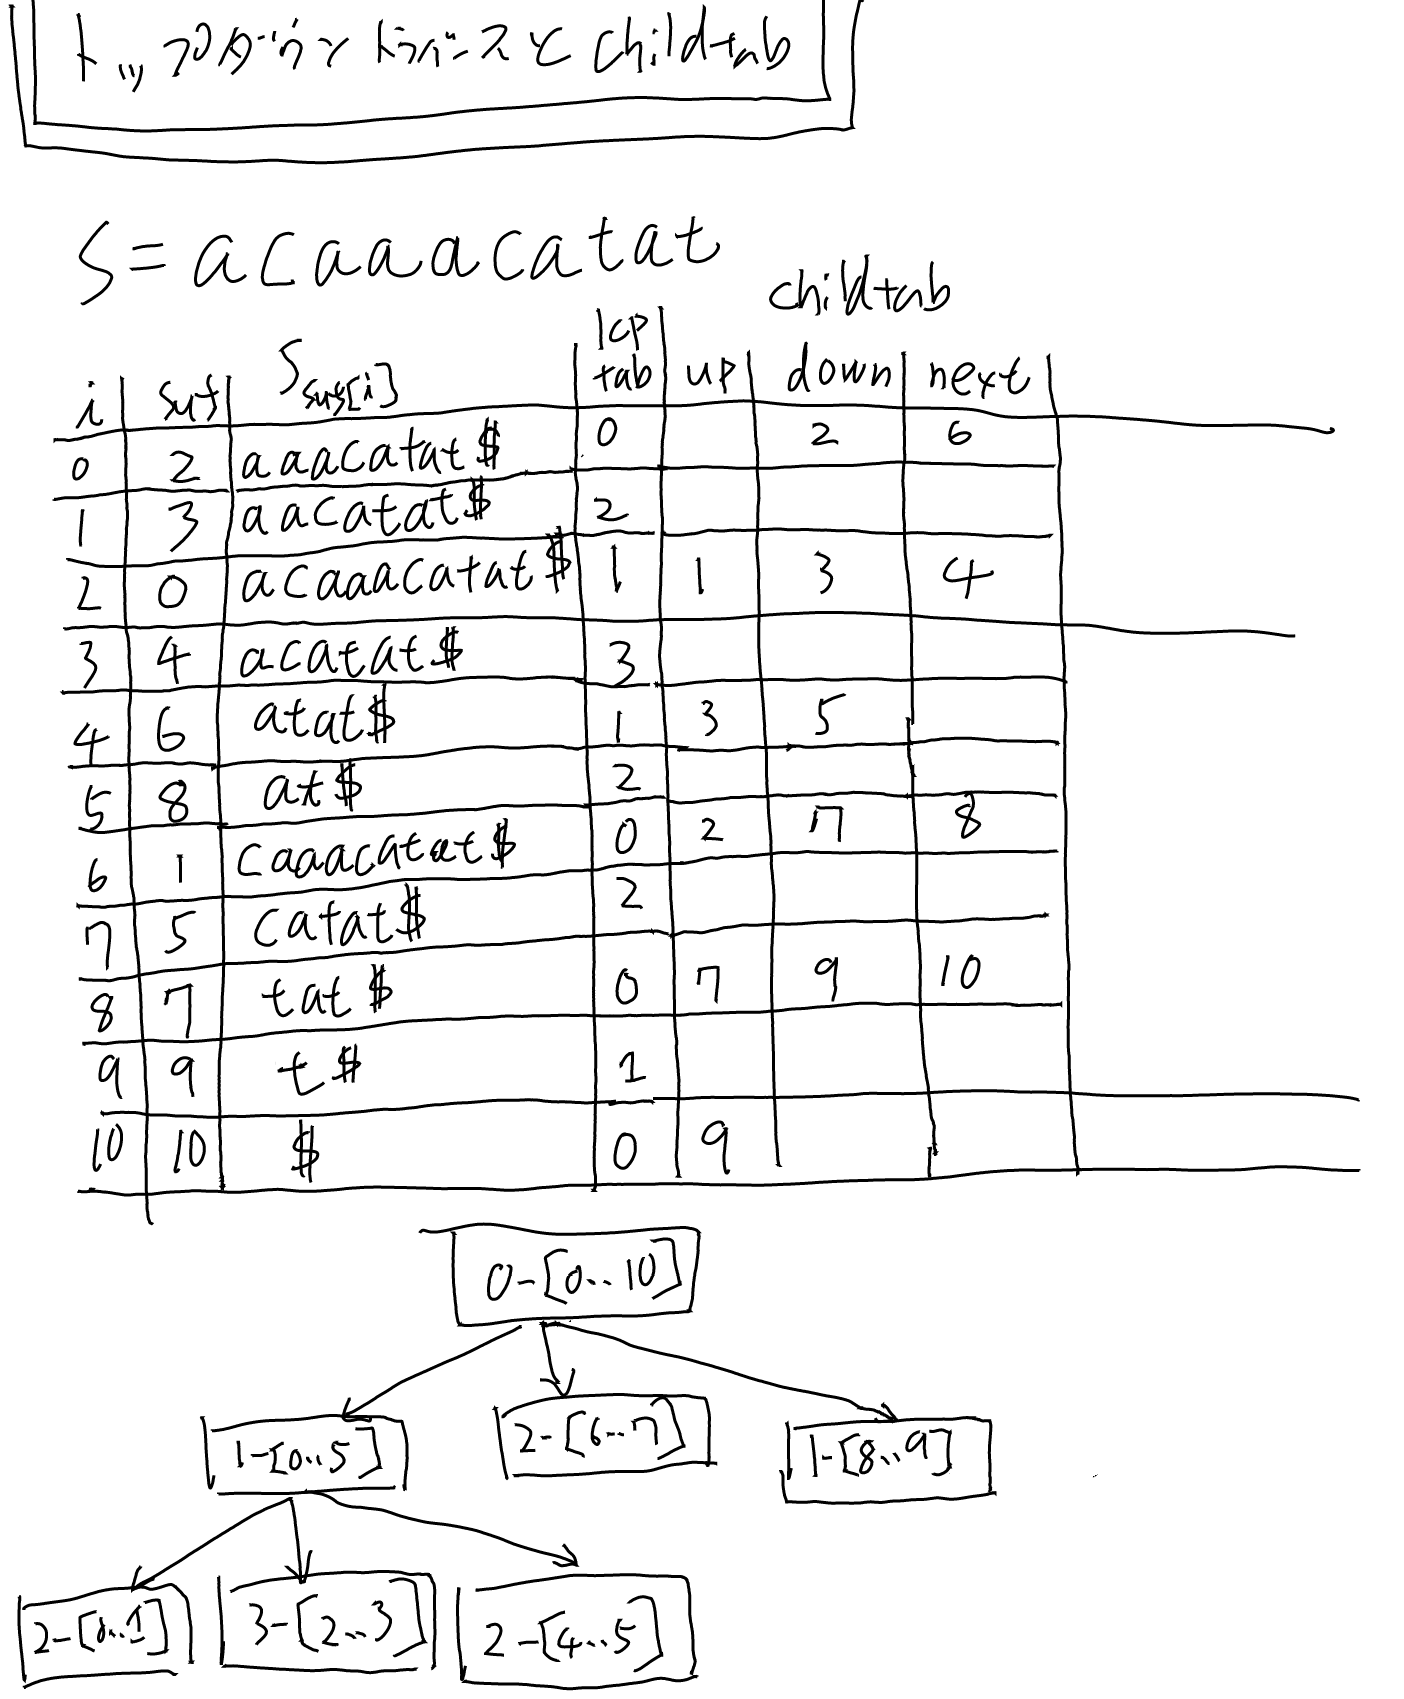 トップダウントラバースとchildtab
S=acaaacatat
childtab
i suf Ssuf[i] lcp tab up down next
0 2 aaacatat$ 0 2 6
1 3 aacatat$ 2
2 0 acaaacatat$ 1 1 3 4
3 4 acatat$ 3
4 6 atat$ 1 3 5
5 8 at$ 2
6 1 caaacatat$ 0 2 7 8
7 5 catat$ 2
8 7 tat$ 0 7 9 10
9 9 t$ 1
10 10 $ 0 9
0-[0..10]
1-[0..5] 2-[6..7] 1-[8..9]
2-[0..1] 3-[2..3] 2-[4..5]